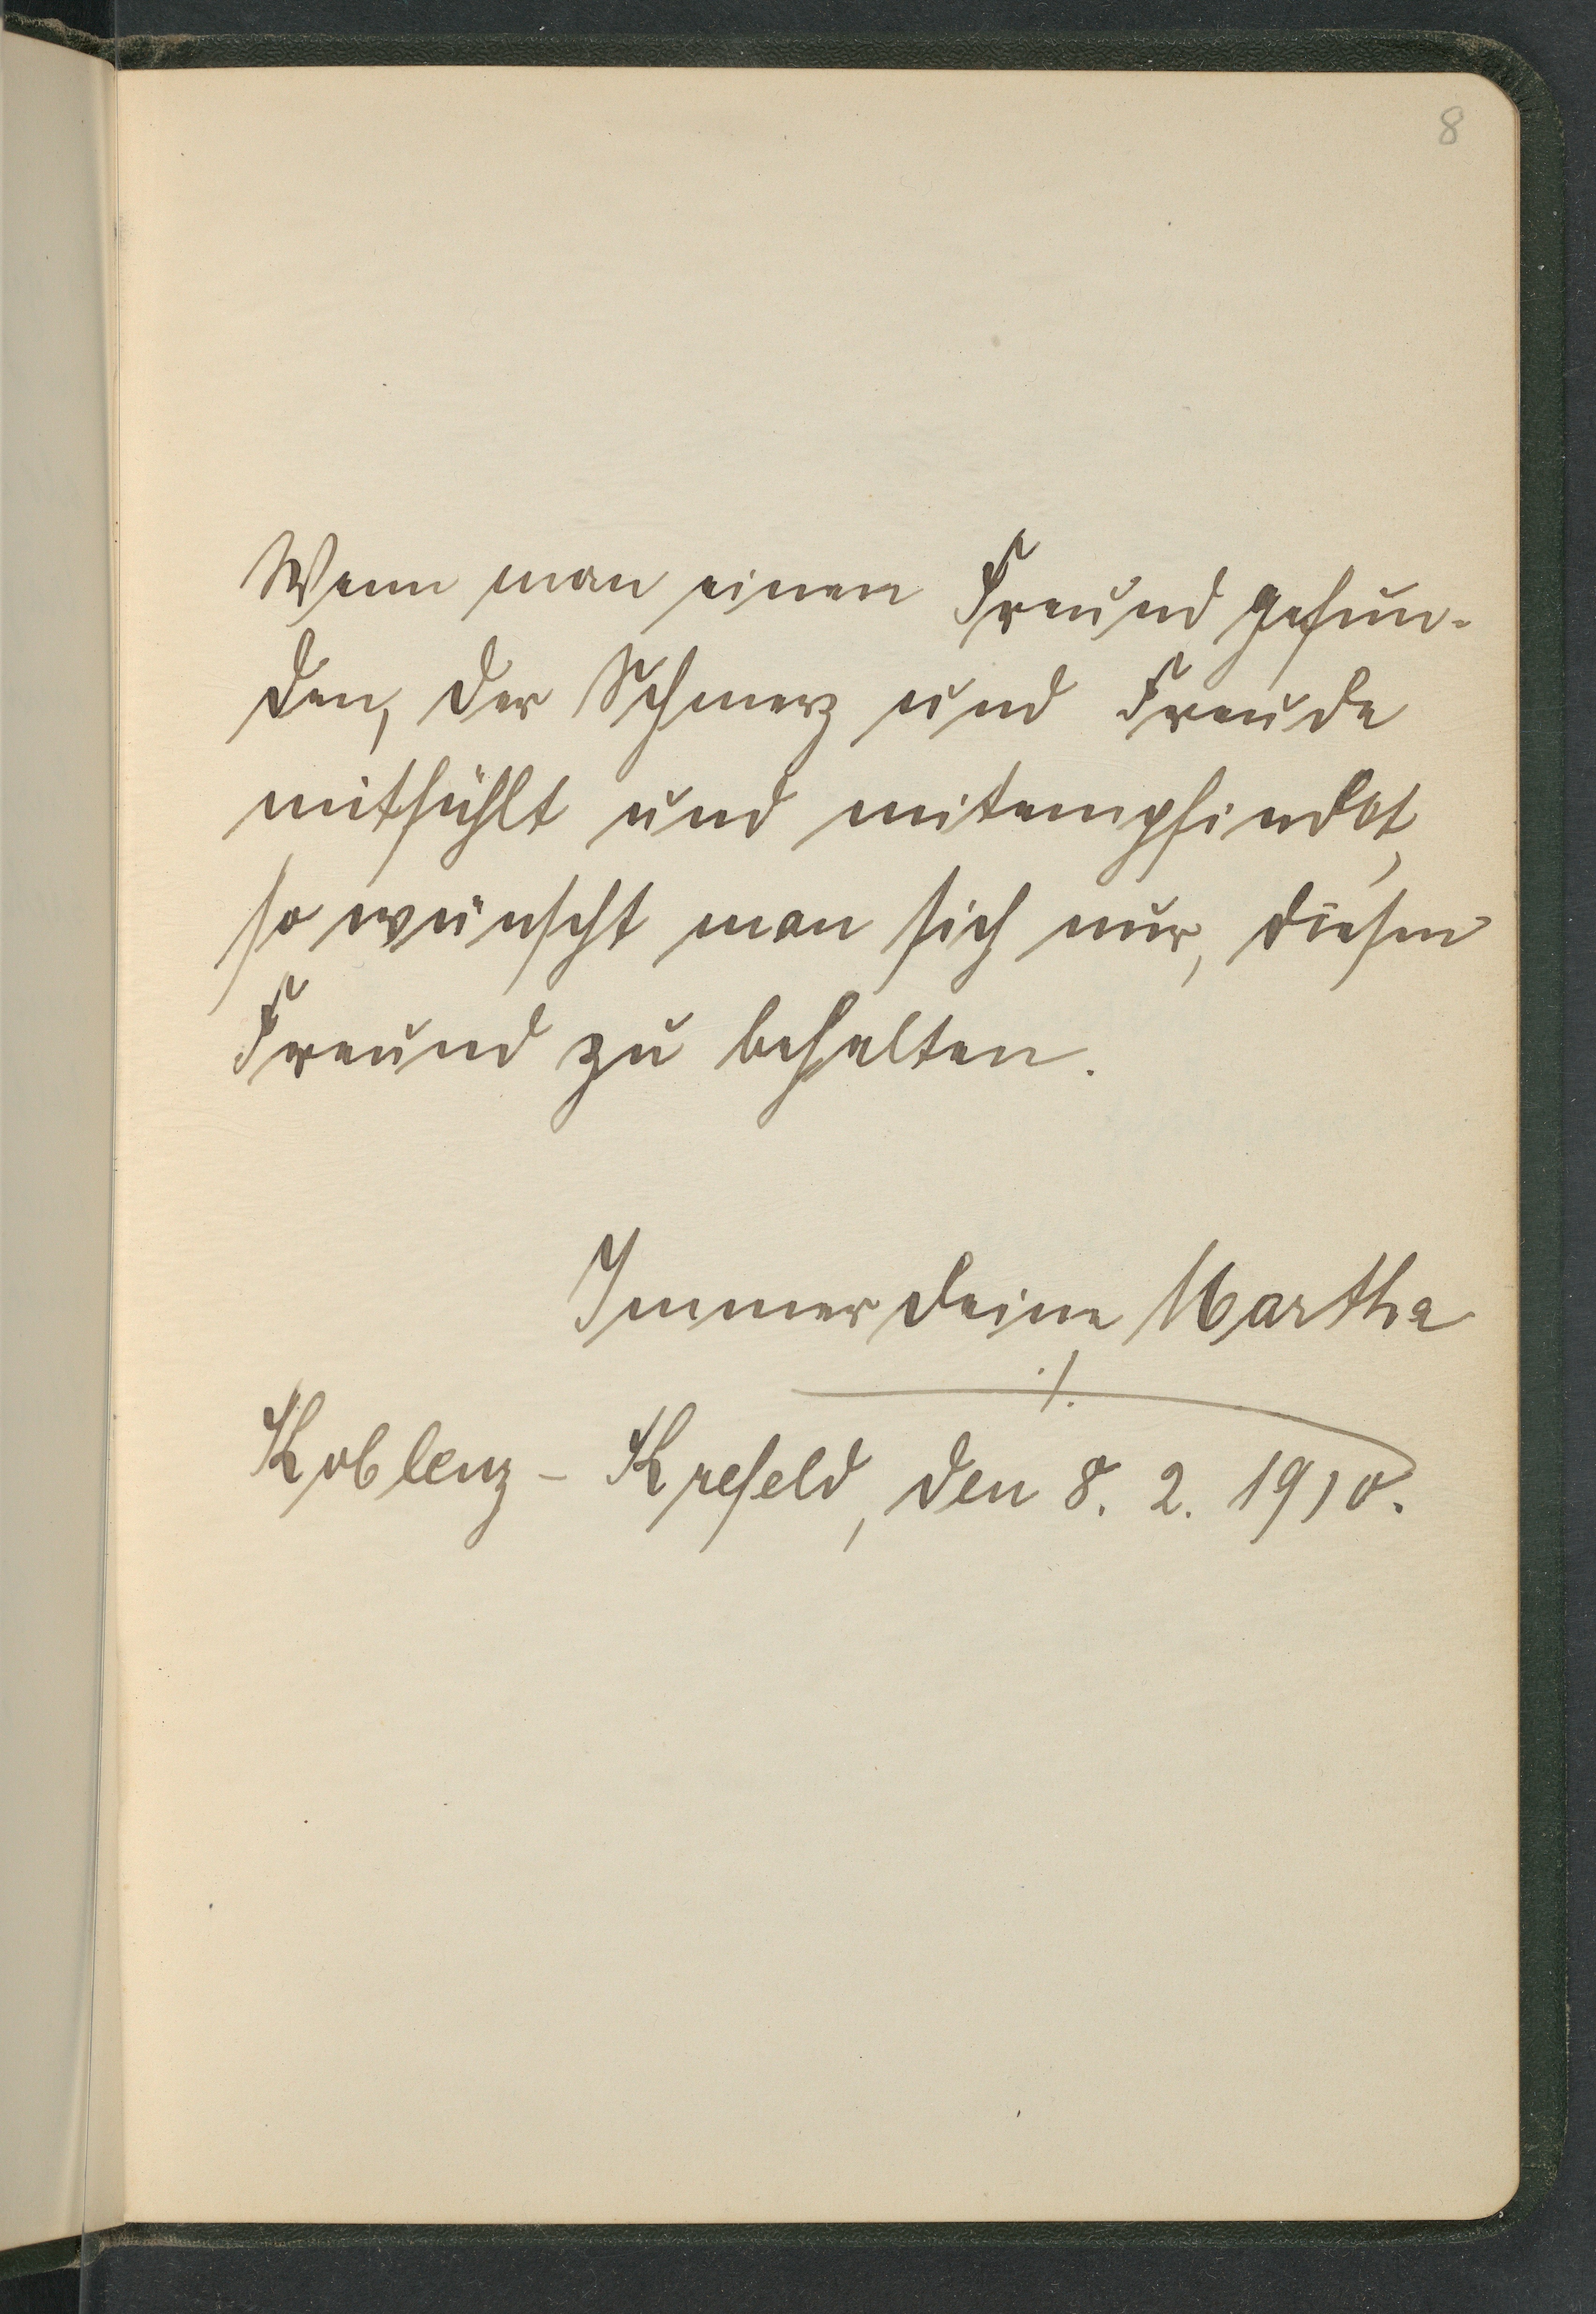 8
Wenn man einen Freund gefun-
den, der Schmerz und Freude
mitfühlt und mitempfindet,
so wünscht man sich nur, diesen
Freund zu behalten.
Immer deine Martha
./.
Koblenz - Krefeld, den 8. 2. 1910.